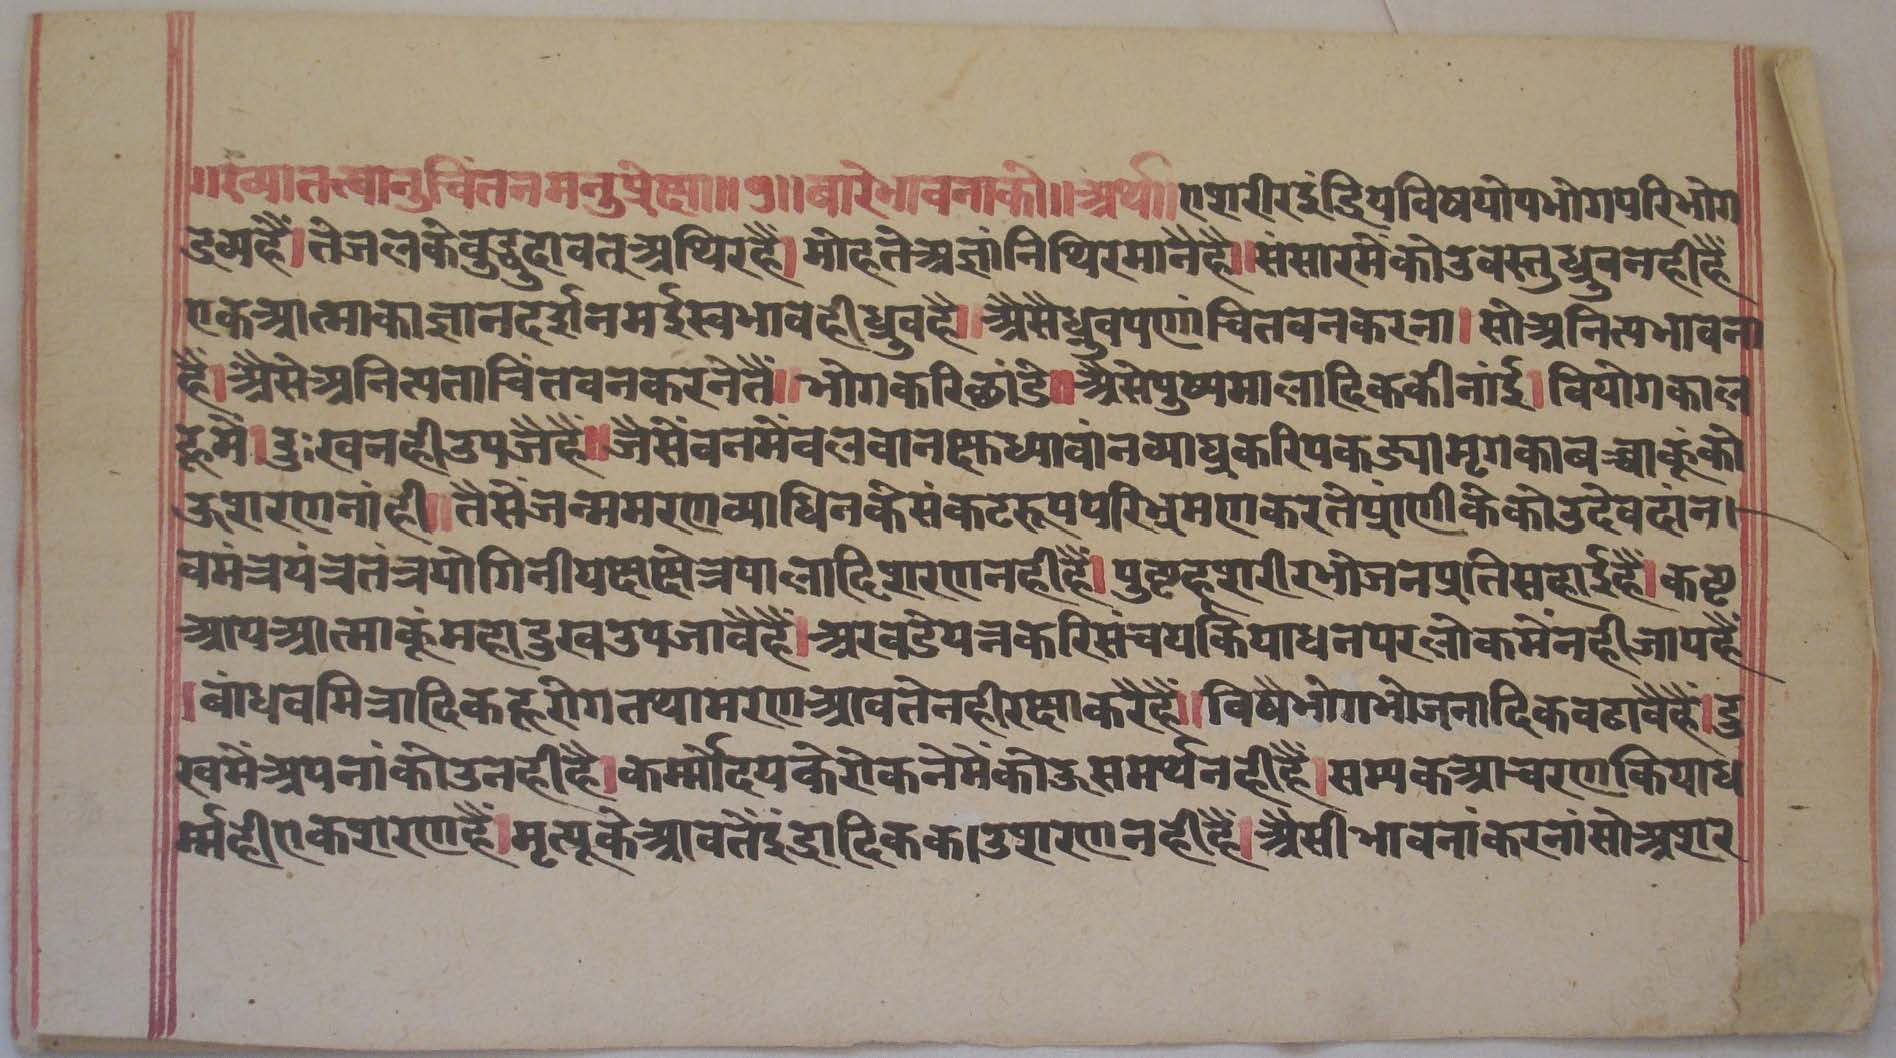 ॥ख्यातत्वानुचिंतनमनुप्रेक्षा॥१॥बारेभावनाको॥अर्था॥एशरीरइंद्रियविषयोपभोगपरिभोग
द्रव्यहैं।तेजलकेवुद्बुदावतूअथिरहैं।मोहतेअज्ञांनिथिरमानैहै॥संसारमैंकोउवस्तुध्रुवनहीहैं
एकआत्माकाज्ञानदर्शनमईस्वभावहीध्रुवहै॥अैसैध्रुवपणांचितवनकरना।सोअनित्यभावना
हैं।अैसेअनित्यताचिंतवनकरनेतैं॥भोगकरिछांडे॥अैसेपुष्पमालादिककीनांई।वियोगकाल
हूमैं।दुःखनहीउपजैहैं॥जैसेंवनमेंवलवानक्षुध्यावांनव्याघ्रकरिपकड्यामृगकाबच्चाकूंको
ऊशरणनांही॥तैसेंजन्ममरणव्याधिनकेसंकटरूपपरिभ्रमणकरतेप्रांणीकेकोउदेवदांन।
वमंत्रयंत्रतंत्रयोगिनीयक्षक्षेत्रपालादिशरणनहीहैं।पुष्टहशरीरभोजनप्रतिसहाईहैं।कष्ट
आयआत्माकूंमहादुखउपजावैहैं।अरवडेयत्नकरिसंचयकियाधनपरलोकमेंनहीजायहैं
।बांधवमित्रादिकहूरोगतथामरणआवतेनहीरक्षाकरैहैं॥विषैभोगभोजनादिकवटावैहैं।दु
खमेंअपनांकोउनहीहै।कर्म्मोदयकेरोकनेमेंकोऊसमर्थनहीहैं।सम्यकआचरणकियाध
र्म्महीएकशरणहैं।मृत्यूकेआवतैंइंद्रादिकका।उशरणनहीहैं।अैसीभावनांकरनांसोअशर